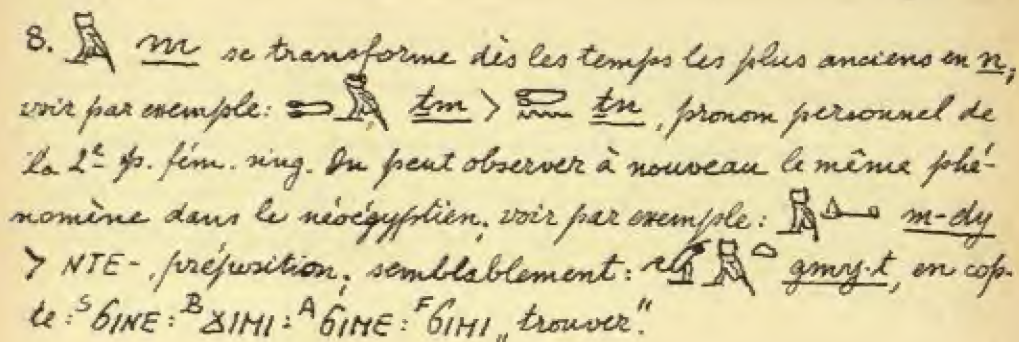 8. 𓅓 m se transforme dès les temps les plus anciens en n;
voir par exemple: 𓍿𓅓 ṯm > 𓍿𓈖 ṯn, pronom personnel de
la 2e p. fém. sing. On peut observer à nouveau le même phé-
nomène dans le néoégyptien; voir par exemple: m-dy
> NTE-, préposition; semblablement: gmy·t, en cop-
te: SϬINE: BϪIMI: AϬIME: FϬIMI „trouver".